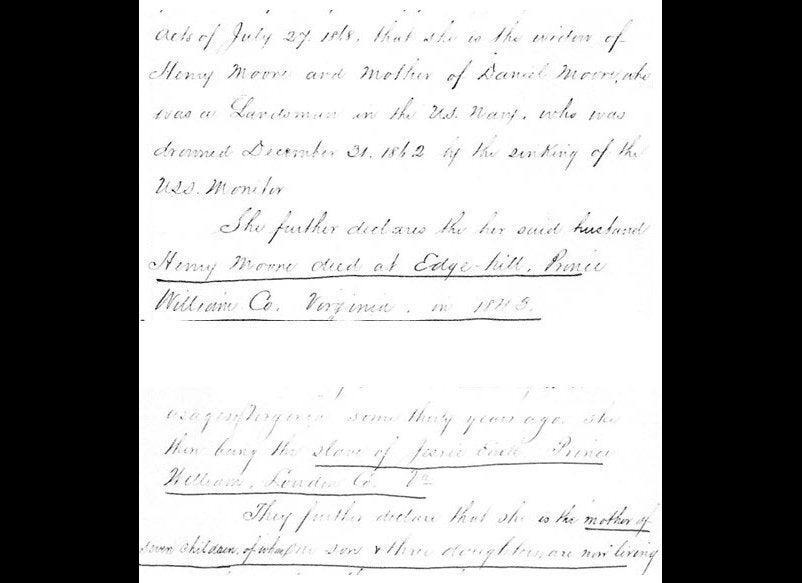 Acts of July 27. 1868. that she is the widow of
Henry Moore and Mother of Daniel Moore, who
was a Landsman in the U.S. Navy. who was
drowned December 31. 1862 by the sinking of the
USS. Monitor
She further declares the her said husband
Henry Moore died at Edge-hill. Prince
William Co. Virginia. in 1845.
Virginia some thirty years ago. she
then being the slave of Jessie Prince
William, Louden Co. Va
They further declare that she is the mother of
seven children, of whom one son & three daughters are now living